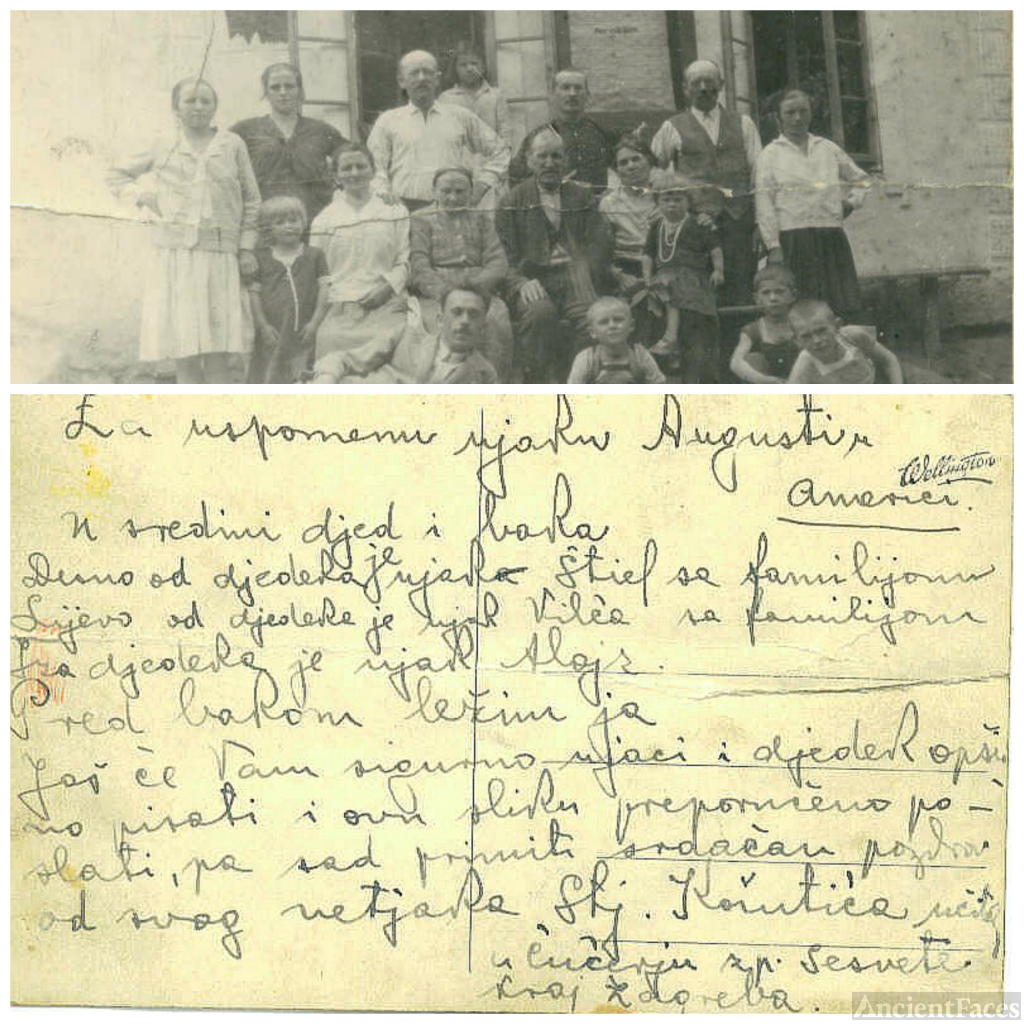 Za uspomenu ujaku Augustu
Wellington
Americi.
U sredini djed i baka
Desno od djedeka je ujak Štief sa familijom
Lijevo od djedeka je ujak Vilča sa familijom
Iza djedeka je ujak Alojz.
Pred bakom ležim ja
Još će Vam sigurno ujaci i djedek opšir
no pisati i ovu sliku preporučeno po-
slati, pa sad primite srdačan pozdrav
od svog netjaka Stj. Košutića učitelj
u Čučerju z.p. Sesvete
kraj Zagreba.
AncientFaces